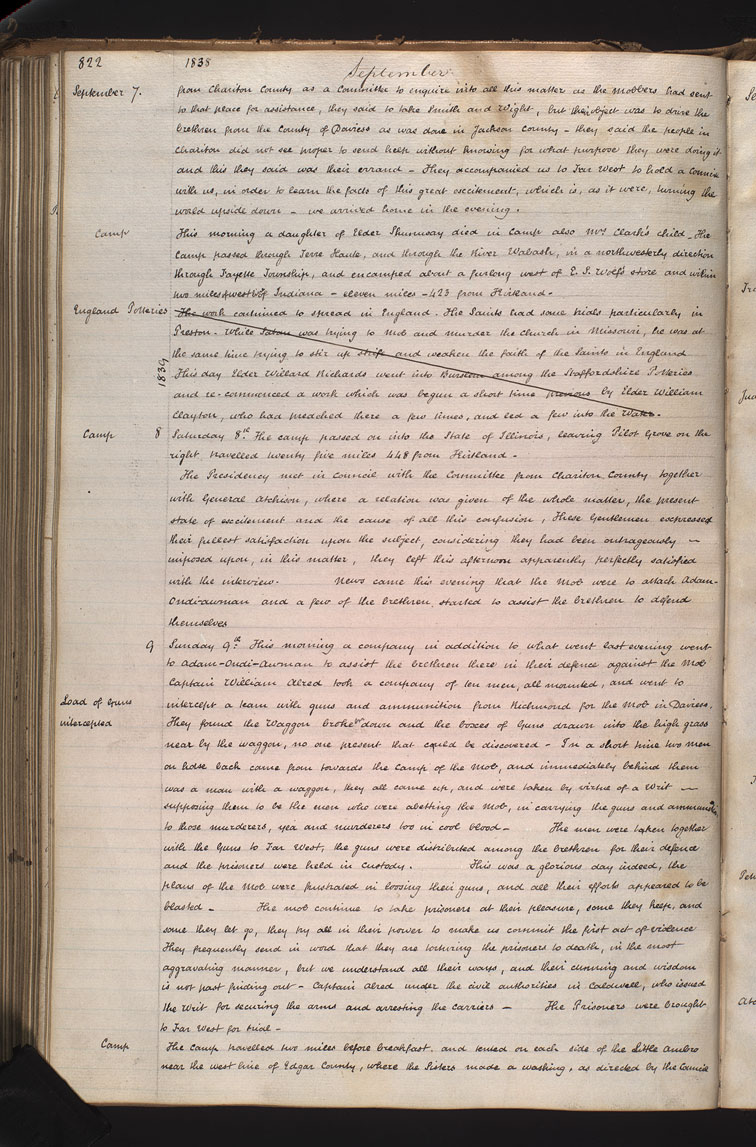 822 1838
September
September 7. from Chariton County as a Committee to enquire into all this matter as the mobbers had sent
to that place for assistance, they said to take Smith and Wight, but their object was to drive the
brethren from the County of Daviess as was done in Jackson County – they said the people in
Chariton did not see proper to send help without knowing for what purpose they were doing it
and this they said was their errand – They accompanied us to Far West to hold a Council
with us, in order to learn the facts of this great excitement, which is, as it were, turning the
world upside down – we arrived home in the evening.
Camp This morning a daughter of Elder Shumway died in Camp also Mrs Clark's child – The
Camp passed through Terre Haute, and through the River Wabash, in a northwesterly direction
through Fayette Township, and encamped about a furlong west of E. S. Wolf's store and within
two miles west of Indiana – eleven miles – 423 from Kirtland –
England Potteries The work continued to spread in England. The Saints had some trials particularly in
Preston. While Satan was trying to mob and murder the church in Missouri, he was at
the same time trying to stir up strife and weaken the faith of the Saints in England
1839
This day Elder Willard Richards went into Burslem among the Staffordshire Potteries
and re-commenced a work which was begun a short time previous by Elder William
Clayton, who had preached there a few times, and led a few into the Water.
Camp 8 Saturday 8th. The camp passed on into the State of Illinois, leaving Pilot Grove on the
right travelled twenty five miles 448 from Kirtland –
The Presidency met in council with the Committee from Chariton County together
with General Atchison, where a relation was given of the whole matter, the present
state of excitement and the cause of all this confusion, These Gentlemen expressed
their fullest satisfaction upon the subject, considering they had been outrageously –
imposed upon, in this matter, they left this afternoon apparently perfectly satisfied
with the interview. News came this evening that the Mob were to attack Adam-
Ondi-awman and a few of the brethren, started to assist the brethren to defend
themselves
9 Sunday 9th. This morning a company in addition to what went last evening went
to Adam-Ondi-Awman to assist the brethren there in their defence against the Mob
Captain William Alred took a company of ten men, all mounted, and went to
Load of Guns intercept a team with guns and ammunition from Richmond for the mob in Daviess.
intercepted They found the Waggon broke down and the boxes of Guns drawn into the high grass
near by the waggon, no one present that could be discovered – In a short time two men
on horse back came from towards the Camp of the Mob, and immediately behind them
was a man with a waggon, they all came up, and were taken by virtue of a Writ –
supposing them to be the men who were abetting the Mob, in carrying the guns and ammunition
to those murderers, yea and murderers too in cool blood – The men were taken together
with the Guns to Far West, the guns were distributed among the brethren for their defence
and the prisoners were held in custody. This was a glorious day indeed, the
plans of the Mob were frustrated in loosing their guns, and all their efforts appeared to be
blasted – The mob continue to take prisoners at their pleasure, some they keep, and
some they let go, they try all in their power to make us commit the first act of violence
They frequently send in word that they are torturing the prisoners to death, in the most
aggravating manner, but we understand all their ways, and their cunning and wisdom
is not past finding out – Captain Alred under the civil authorities in Caldwell, who issued
the Writ for securing the arms and arresting the carriers – The Prisoners were brought
to Far West for trial –
Camp The Camp travelled two miles before breakfast. and tented on each side of the Little Ambro
near the west line of Edgar County, where the Sisters made a washing, as directed by the Council